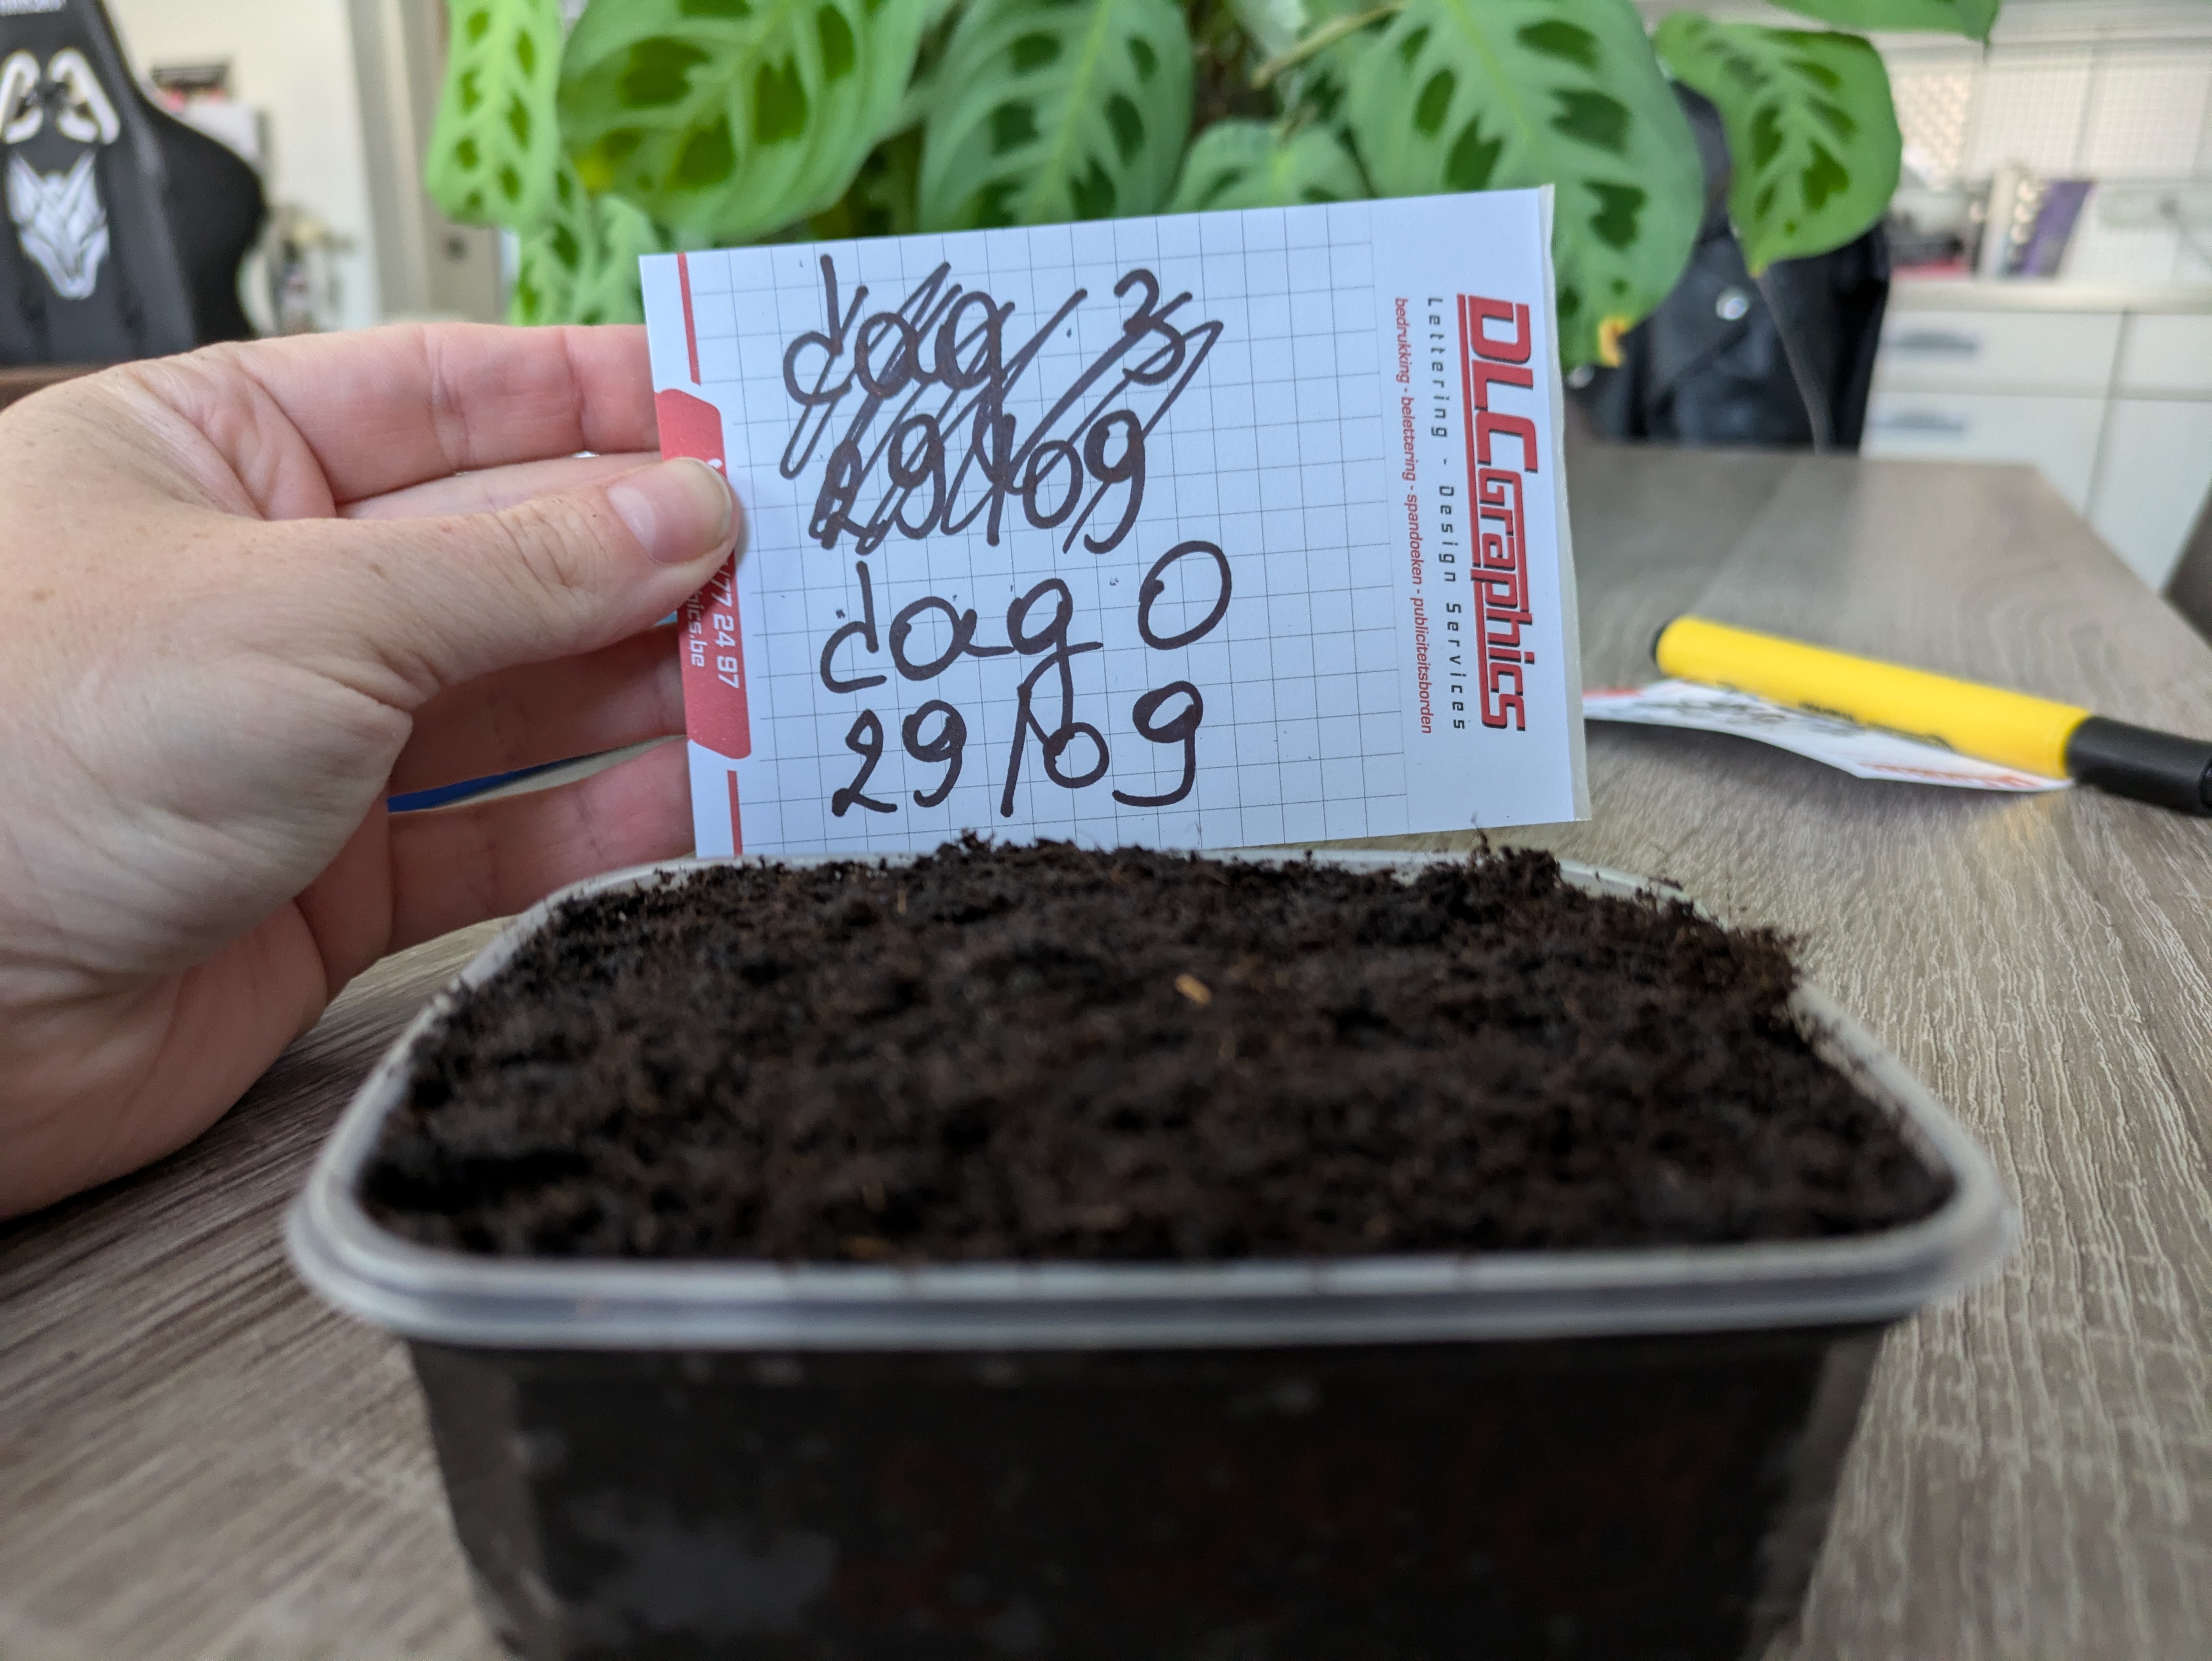 dag 3
29/09
dag 0
29/09
DLCGraphics
Lettering - Design Services
bedrukking - belettering - spandoeken - publiciteitsborden
77 24 97
hics.be